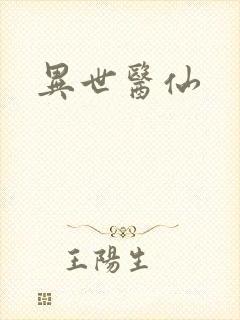 異世醫仙
王陽生